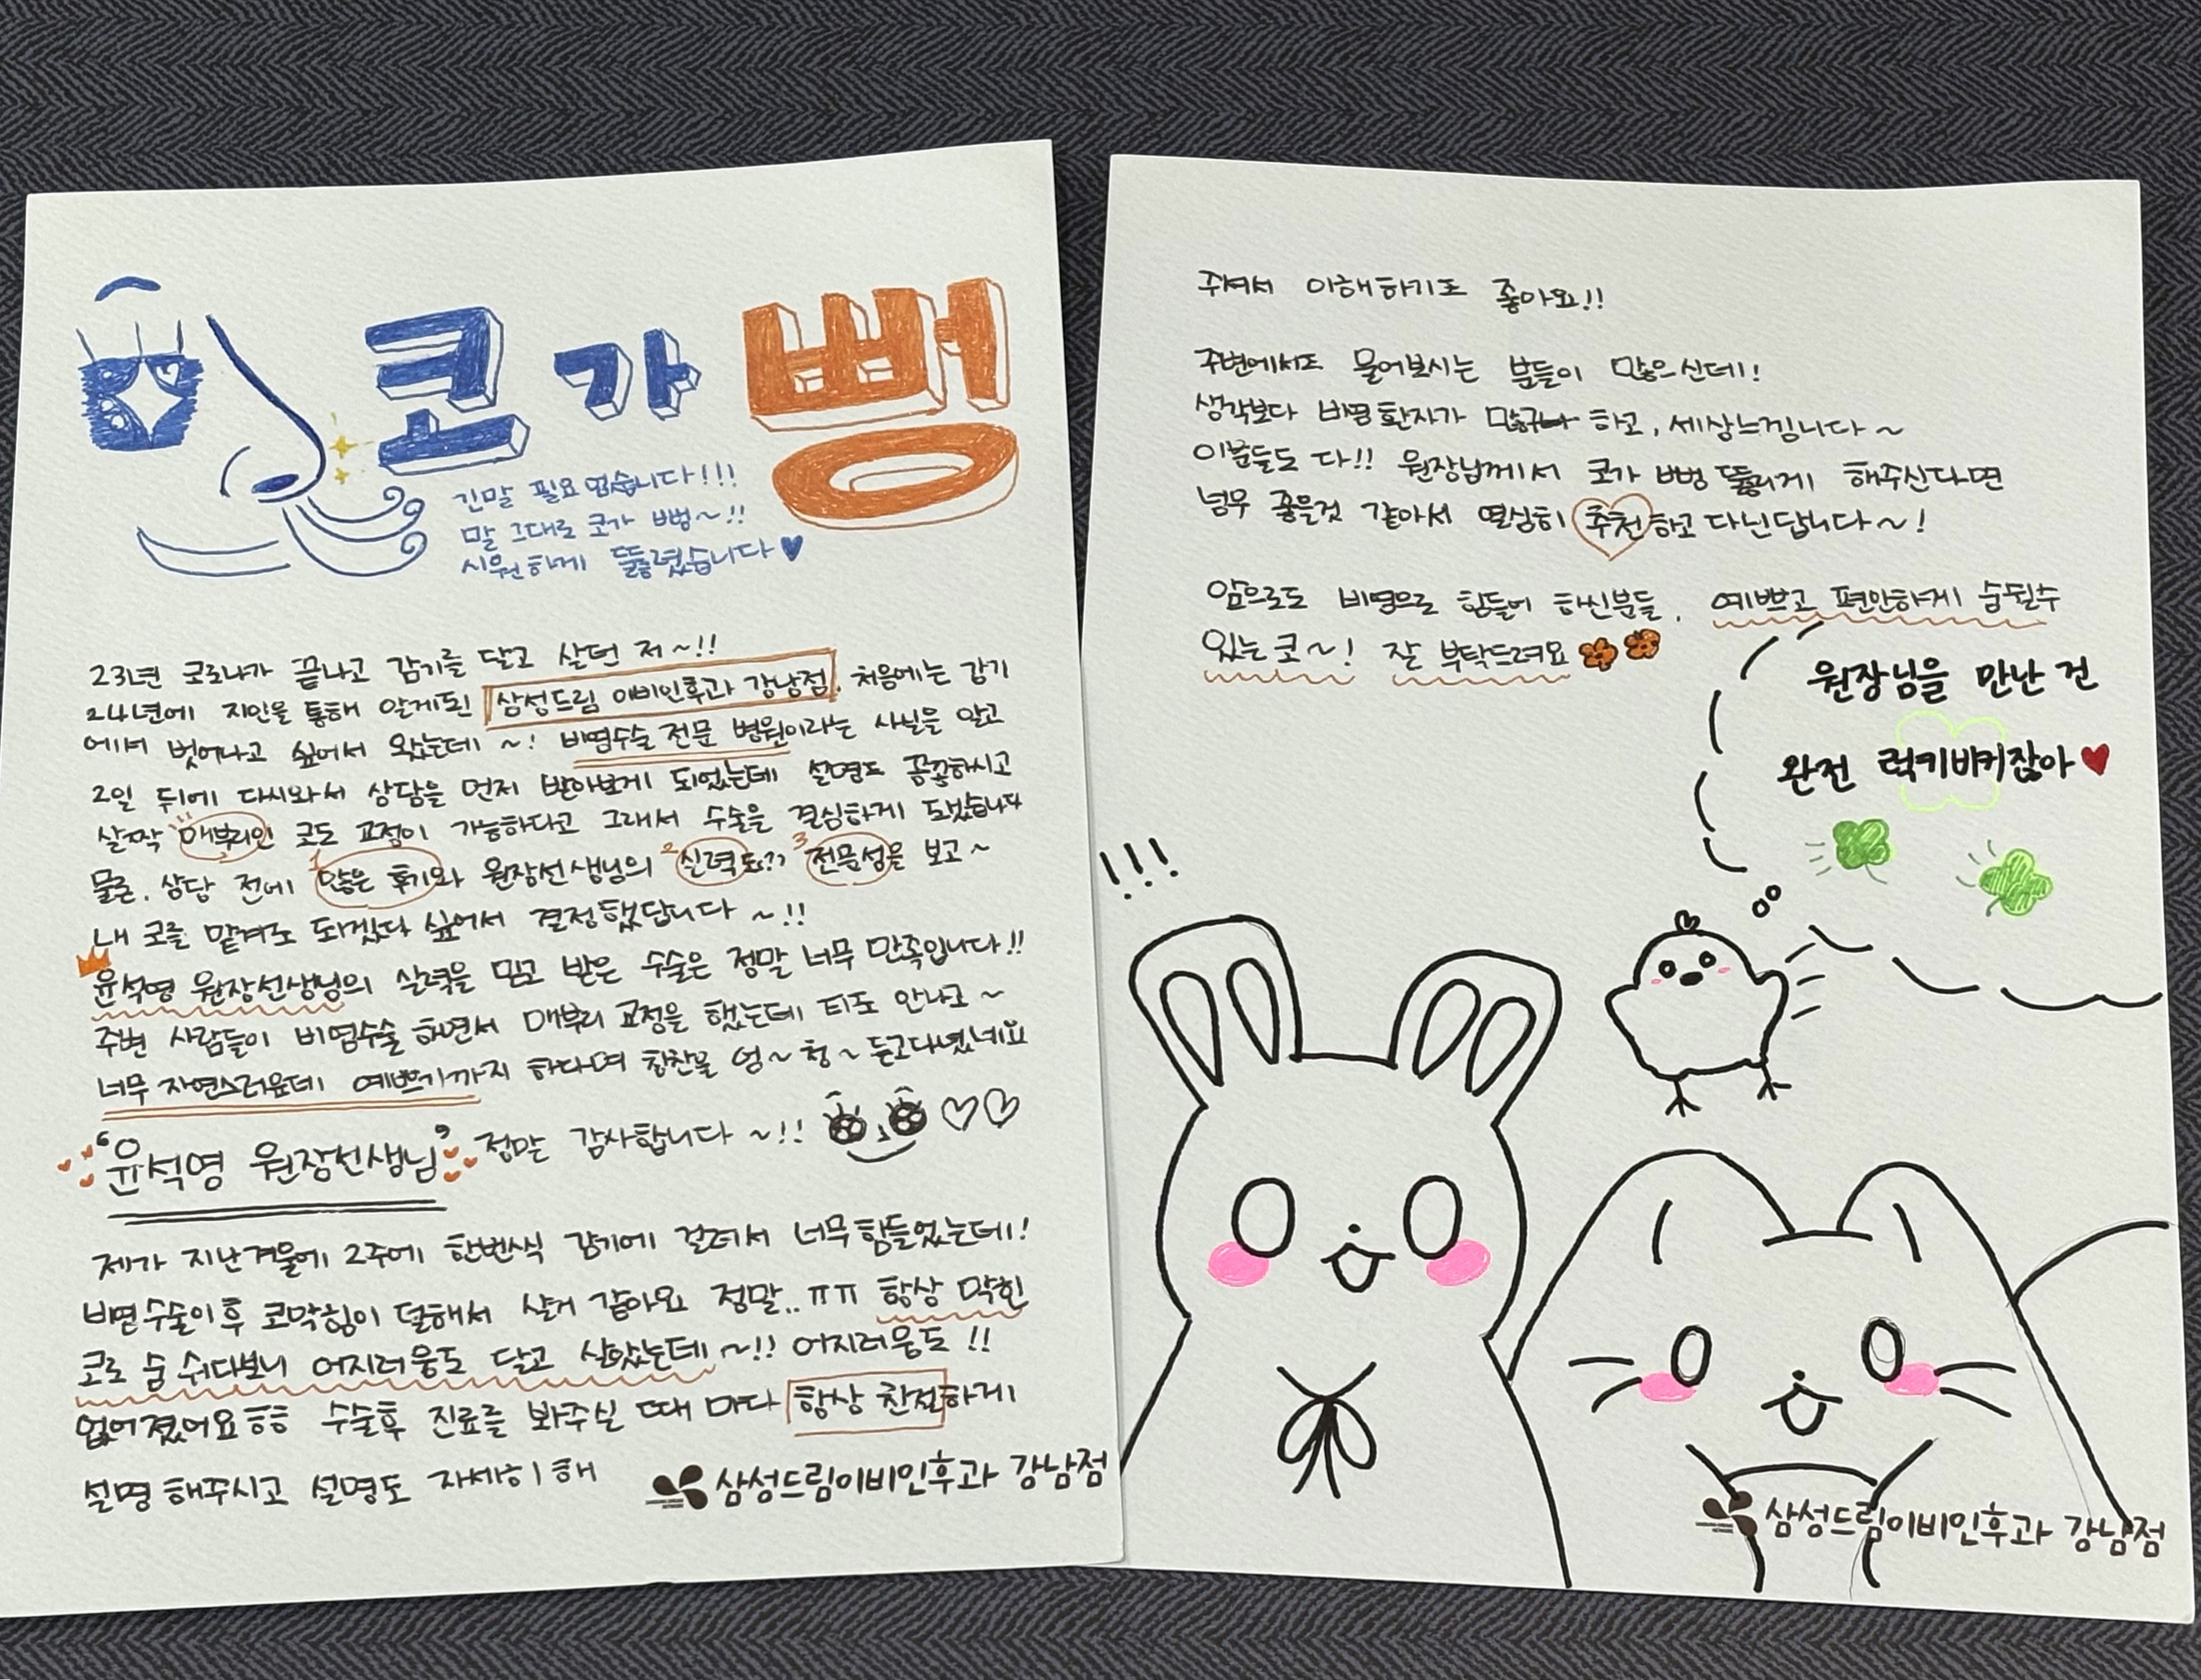 코가 뻥
긴말 필요 없습니다!!!
말 그대로 코가 뻥~!!
시원하게 뚫렸습니다♥
23년 코로나가 끝나고 감기를 달고 살던 저~!!
24년에 지인을 통해 알게된 삼성드림 이비인후과 강남점. 처음에는 감기
에서 벗어나고 싶어서 왔는데~! 비염수술 전문 병원이라는 사실을 알고
2일 뒤에 다시와서 상담을 먼저 받아보게 되었는데 설명도 꼼꼼하시고
살짝 매부리인 코도 교정이 가능하다고 그래서 수술을 결심하게 됐습니다
물론, 상담 전에 1 많은 후기와 원장선생님의 2 실력도?? 3 전문성을 보고~
내 코를 맡겨도 되겠다 싶어서 결정했답니다~!!
윤석영 원장선생님의 실력을 믿고 받은 수술은 정말 너무 만족입니다!!
주변 사람들이 비염수술 하면서 매부리 교정을 했는데 티도 안나고~
너무 자연스러운데 예쁘기까지 하다며 칭찬을 엄~청~ 듣고다녔네요
"윤석영 원장선생님" 정말 감사합니다~!! ♡♡
제가 지난겨울에 2주에 한번씩 감기에 걸려서 너무 힘들었는데!
비염수술이후 코막힘이 덜해서 살거 같아요 정말..ㅠㅠ 항상 막힌
코로 숨 쉬다보니 어지러움도 달고 살았는데~!! 어지러움도!!
없어졌어요ㅎㅎ 수술후 진료를 봐주실 때 마다 항상 친절하게
설명해주시고 설명도 자세히 해
삼성드림이비인후과 강남점
주셔서 이해하기도 좋아요!!
주변에서도 물어보시는 분들이 많으신데!
생각보다 비염환자가 많구나 하고, 세상느낍니다~
이분들도 다!! 원장님께서 코가 뻥 뚫리게 해주신다면
넘우 좋을것 같아서 열심히 추천하고 다닌답니다~!
앞으로도 비염으로 힘들어 하신분들, 예쁘고 편안하게 숨쉴수
있는 코~! 잘 부탁드려요
원장님을 만난 건
완전 럭키비키잖아♥
!!!
삼성드림이비인후과 강남점